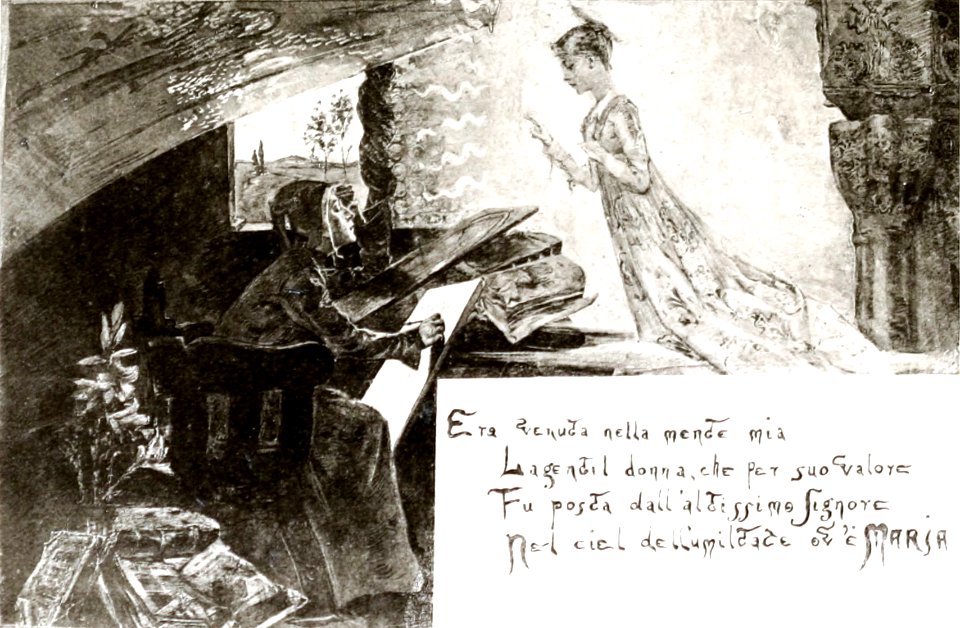 Era venuta nella mente mia
La gentil donna, che per suo valore
Fu posta dall'altissimo Signore
Nel ciel dell'umiltate ov'è MARIA